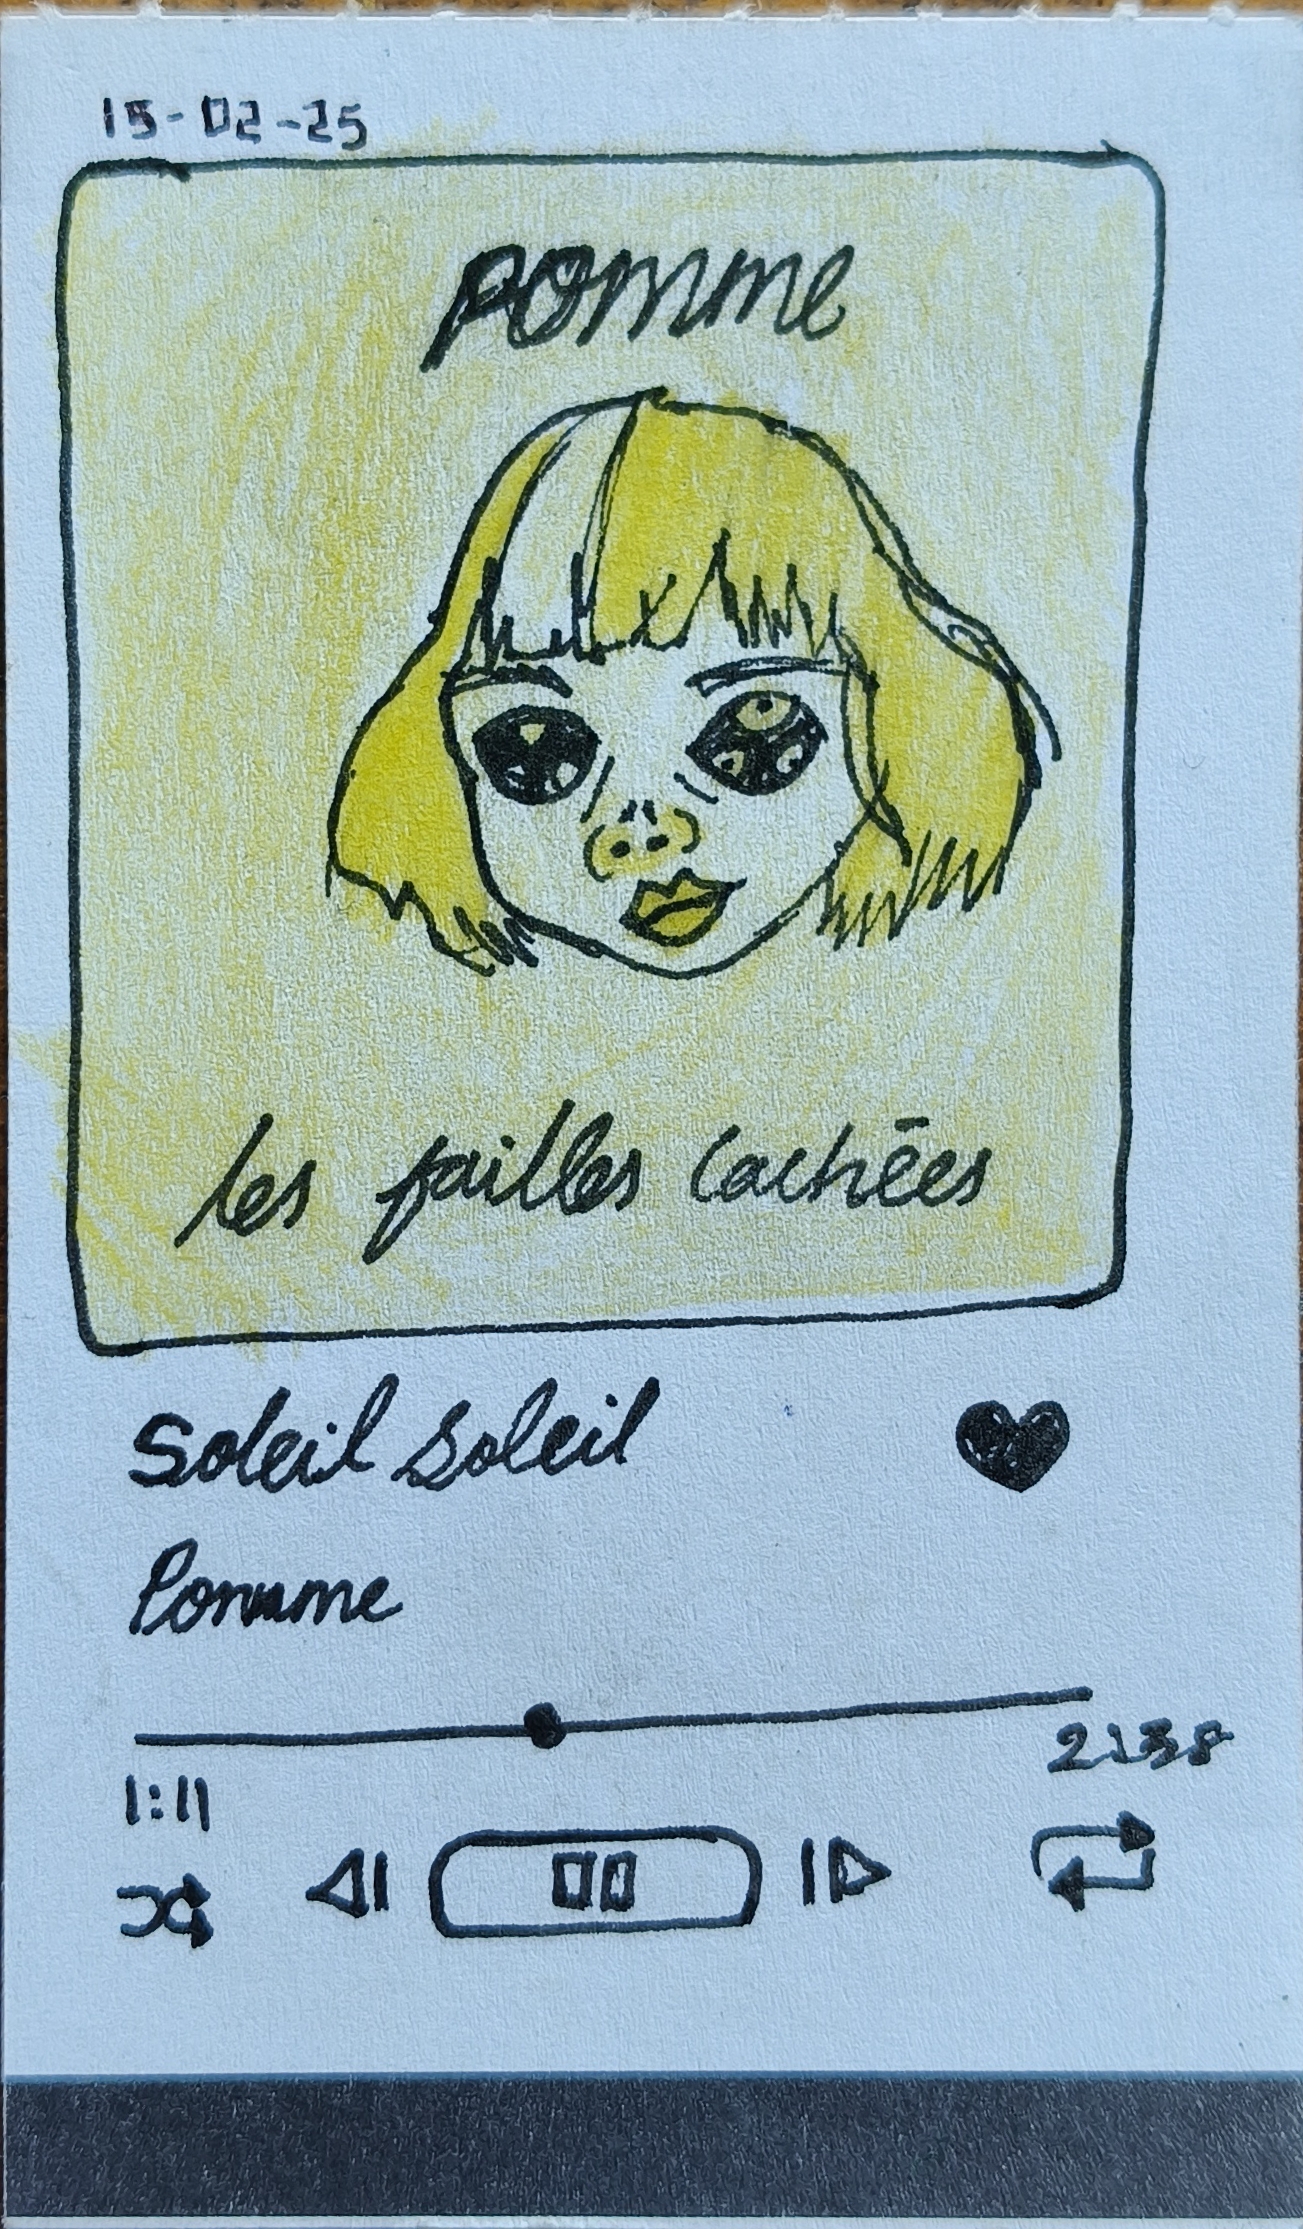 15-02-25
Pomme
les failles cachées
Soleil Soleil
Pomme
1:11
2:38